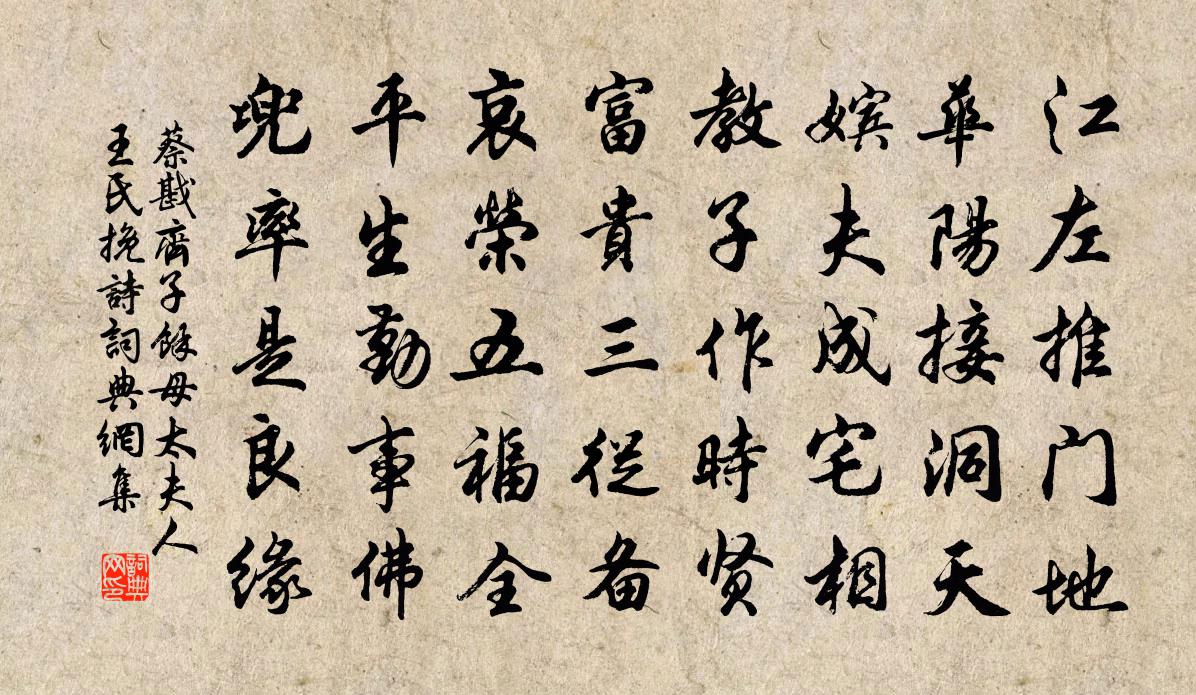 江左推门地
華陽接洞天
嬪夫成宅相
教子作時贤
富貴三從备
哀榮五福全
平生勤事佛
兜率是良緣
蔡戡齊子餘母太夫人
王氏挽詩詞典網集
詞典网印